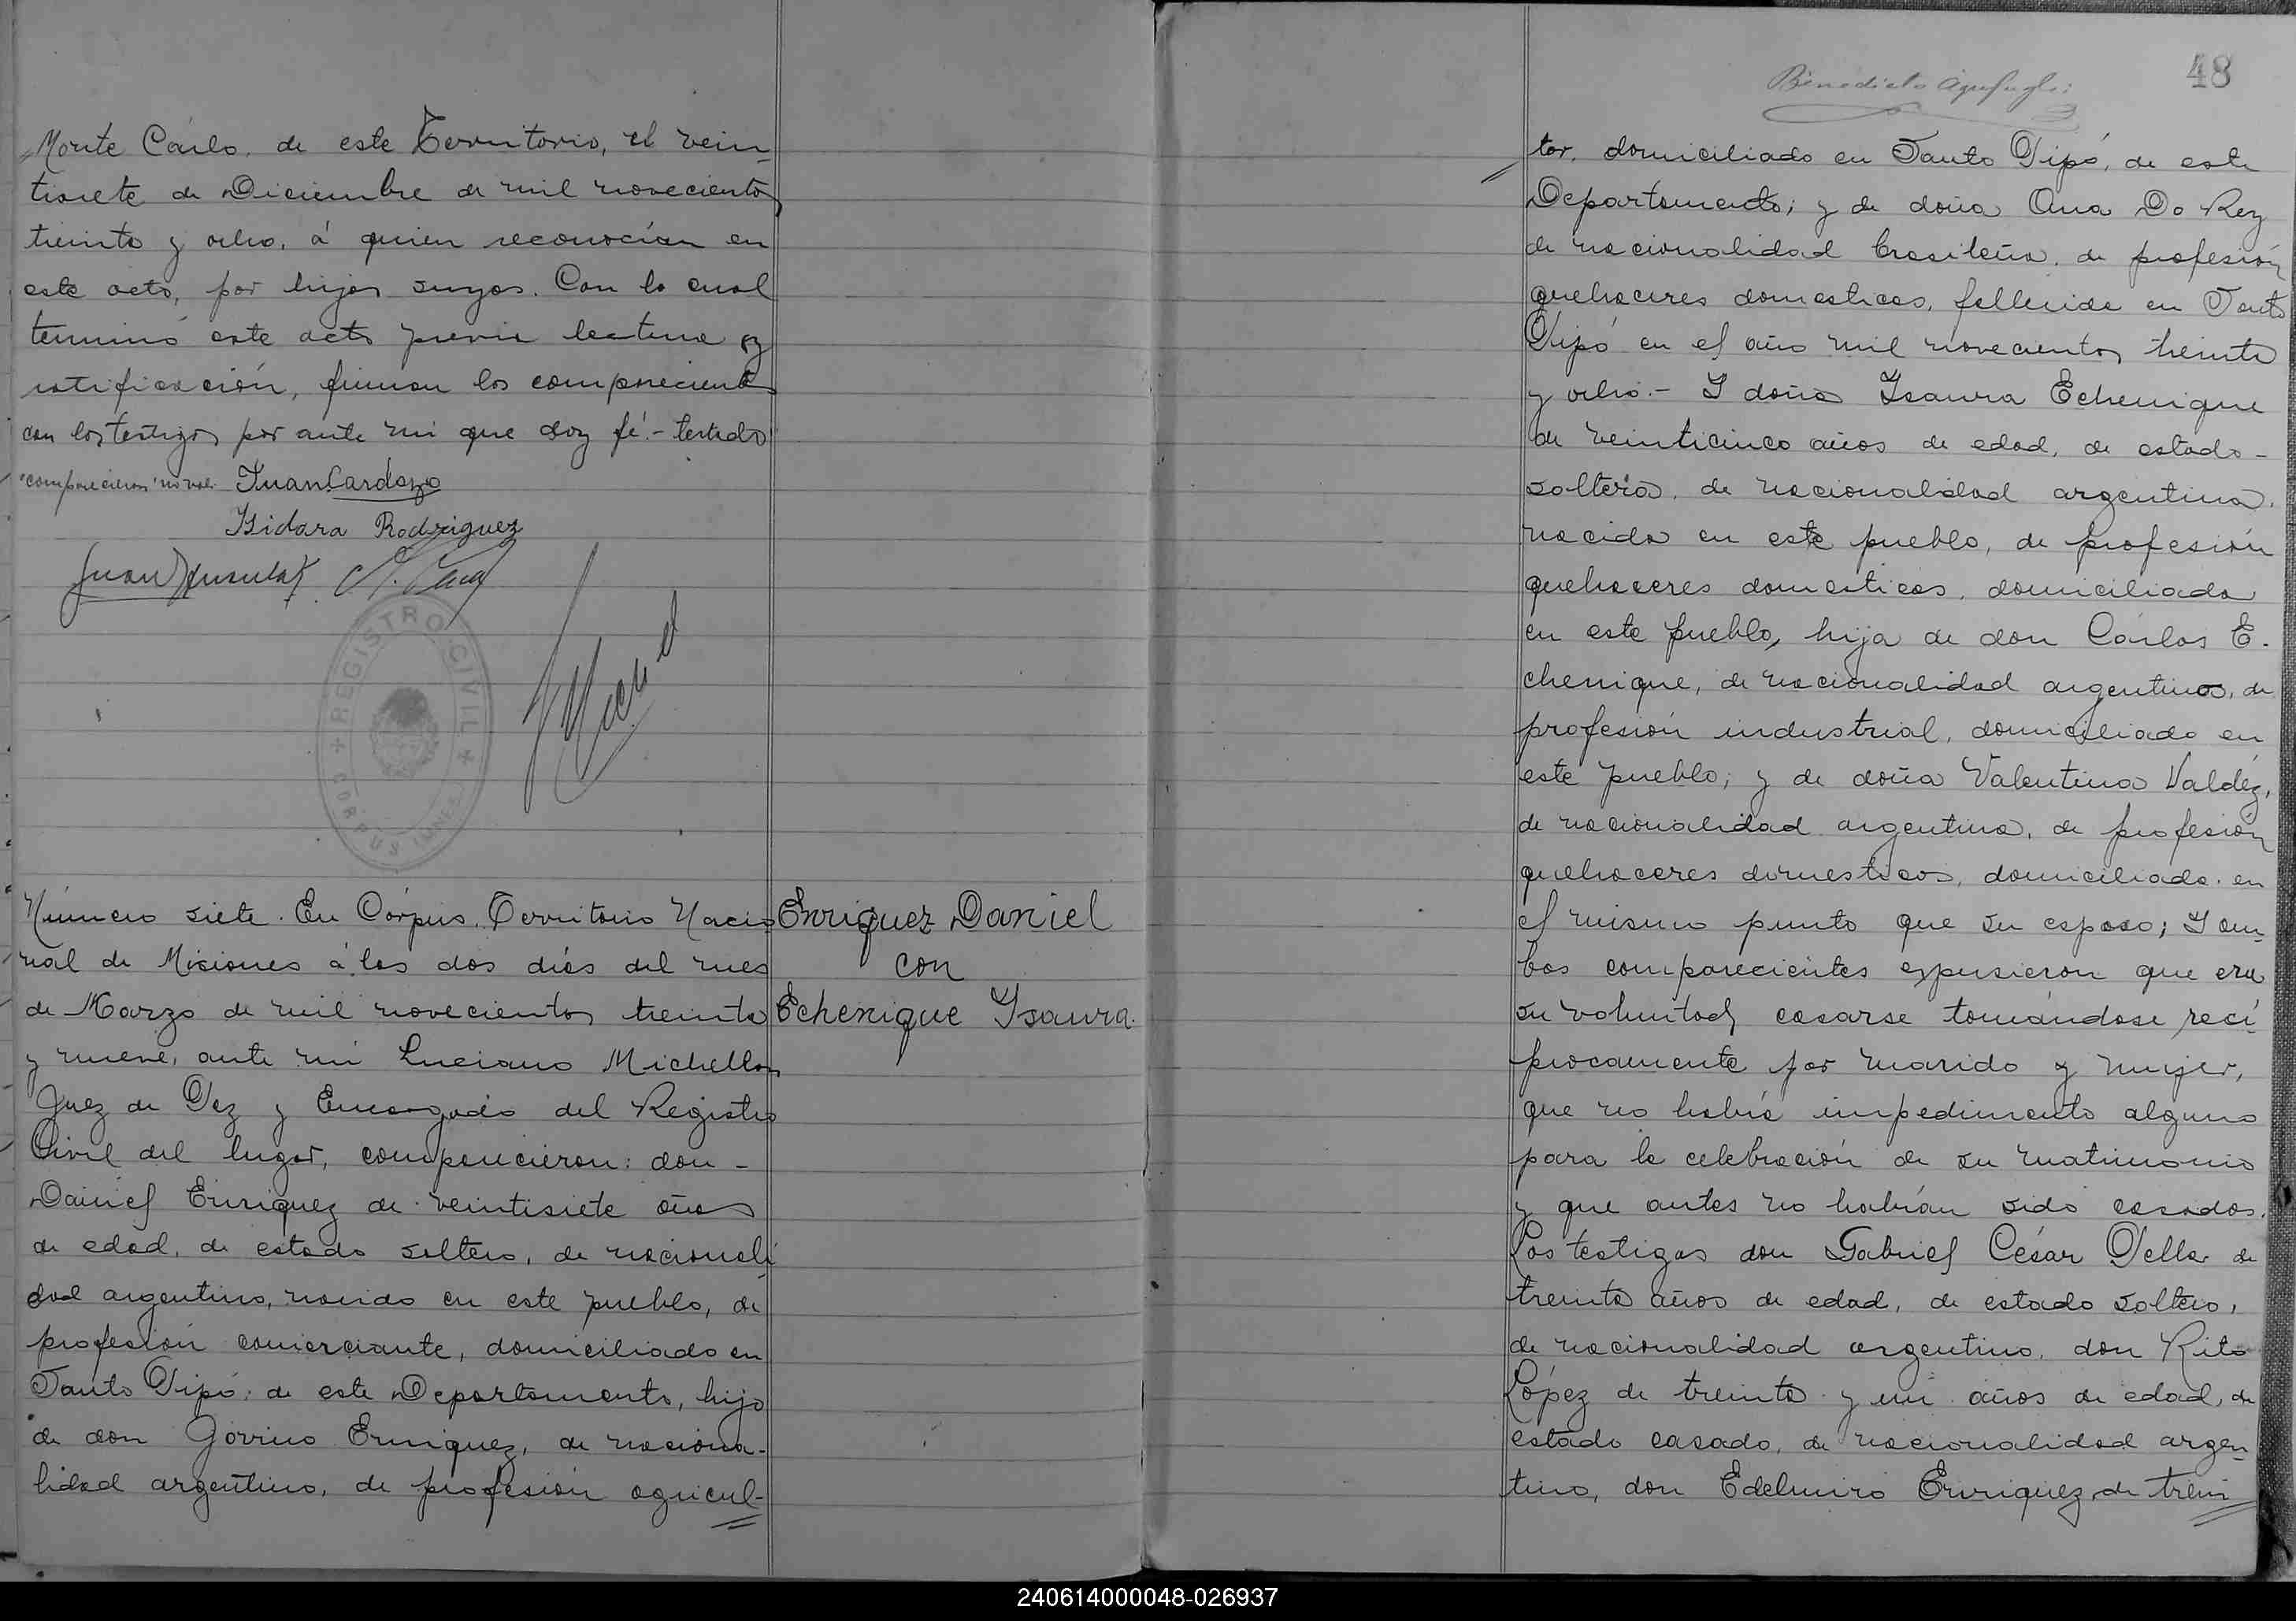 Monte Cárlo, de este Territorio, el vein-
tisiete de Diciembre de mil novecientos
treinta y ocho, á quien reconocían en
este acto, por hijos suyos. Con lo cual
terminó este acto previa lectura y
ratificación, firman los comparecientes
con los testigos por ante mi que doy fé.- testado
"comparecieron" no vale. Juan Cardozo
Isidora Rodriguez
Juan
REGISTRO CIVIL
CORPUS
Número siete. En Córpus, Territorio Nacio
nal de Misiones á los dos días del mes
de Marzo de mil novecientos treinta
y nueve, ante mi Luciano Michellon
Juez de Paz y Encargado del Registro
Civil del lugar, comparecieron: don -
Daniel Enriquez de veintisiete años
de edad, de estado soltero, de nacionali
dad argentino, nacido en este pueblo, de
profesión comerciante, domiciliado en
Santo Pipó, de este Departamento, hijo
de don Govino Enriquez, de naciona-
lidad argentino, de profesión agricul-
Enriquez Daniel
con
Echenique Ysaura.
48
Benedicto
tor, domiciliado en Santo Pipó, de este
Departamento; y de doña Ana Do Rey
de nacionalidad brasileña, de profesión
quehaceres domesticos, fallecida en Santo
Pipó en el año mil novecientos treinta
y ocho.- Y doña Ysaura Echenique
de veinticinco años de edad, de estado -
soltera, de nacionalidad argentina,
nacida en este pueblo, de profesión
quehaceres domesticos, domiciliada
en este pueblo, hija de don Cárlos E-
chenique, de nacionalidad argentino, de
profesión industrial, domiciliado en
este pueblo; y de doña Valentina Valdéz,
de nacionalidad argentina, de profesión
quehaceres domesticos, domiciliada en
el mismo punto que su esposo; Y am-
bos comparecientes expusieron que era
su voluntad casarse tomándose recí
procamente por marido y mujer,
que no había impedimento alguno
para la celebración de su matrimonio
y que antes no habían sido casados.
Los testigos don Gabriel César Della de
treinta años de edad, de estado soltero,
de nacionalidad argentino, don Rito
López de treinta y un años de edad, de
estado casado, de nacionalidad argen-
tino, don Edelmiro Enriquez de trein
240614000048-026937